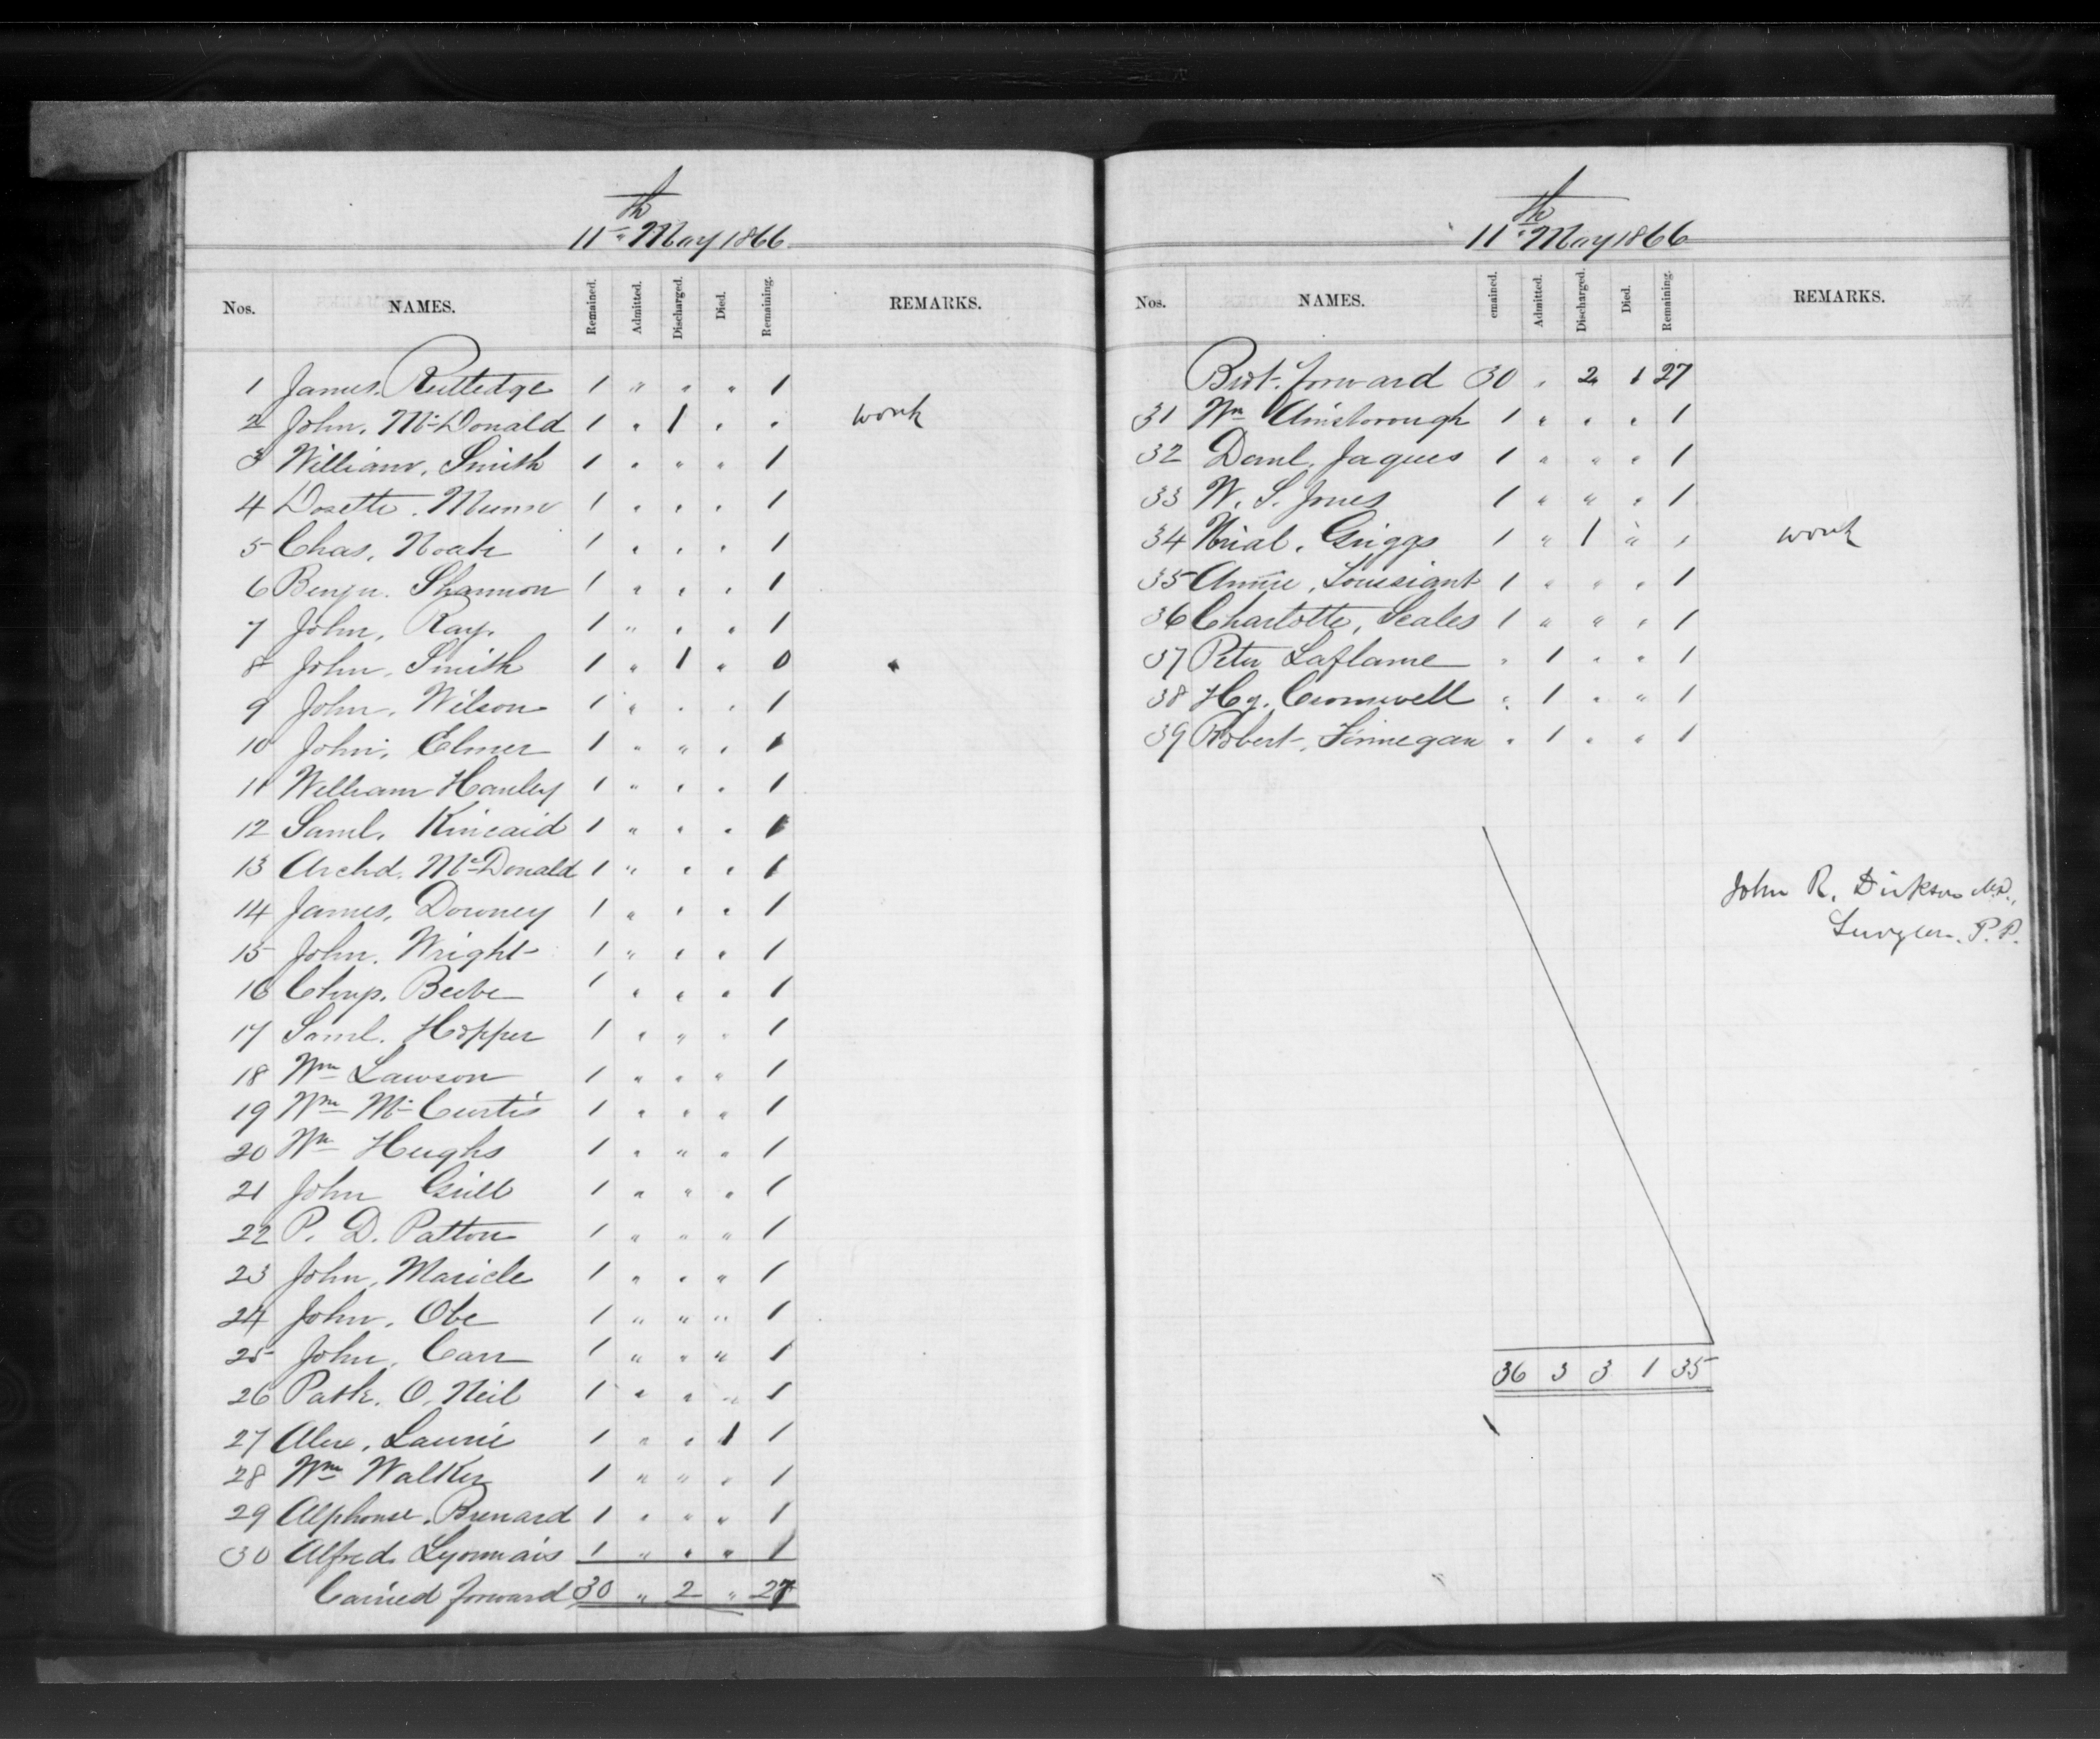 11th May 1866
Nos. NAMES. Remained. Admitted. Discharged. Died. Remaining. REMARKS.
1 James. Rutledge 1 " " " 1
2 John. Mc Donald 1 " 1 " " work
3 William. Smith 1 " " " 1
4 Dosette. Munro 1 " " " 1
5 Chas. Noah 1 " " " 1
6 Benjn. Shannon 1 " " " 1
7 John. Ray. 1 " " " 1
8 John. Smith 1 " 1 " 0 "
9 John. Wilson 1 " " " 1
10 John. Elmer 1 " " " 1
11 William Hanley 1 " " " 1
12 Saml. Kincaid 1 " " " 1
13 Archd. Mc Donald 1 " " " 1
14 James. Downey 1 " " " 1
15 John. Wright 1 " " " 1
16 Beebe 1 " " " 1
17 Saml. Hopper 1 " " " 1
18 Wm Lawson 1 " " " 1
19 Wm Mc Curtis 1 " " " 1
20 Wm Hughs 1 " " " 1
21 John Grill 1 " " " 1
22 P. D. Patton 1 " " " 1
23 John. Maricle 1 " " " 1
24 John. Obe 1 " " " 1
25 John. Carr 1 " " " 1
26 Patk. O. Neil 1 " " " 1
27 Alex. Laurie 1 " " 1 1
28 Wm Walker 1 " " " 1
29 Alphonse. Brenard 1 " " " 1
30 Alfred. Lyonnais 1 " " " 1
Carried forward 30 " 2 " 27
11th May 1866
Nos. NAMES. emained. Admitted. Discharged. Died. Remaining. REMARKS.
Brot. forward 30 " 2 1 27
31 Wm Ainsborough 1 " " " 1
32 Danl. Jaques 1 " " " 1
33 W. S. Jones 1 " " " 1
34 Griggs 1 " 1 " " work
35 Annie. Louisiant 1 " " " 1
36 Charlotte. Scales 1 " " " 1
37 Peter Laflame " 1 " " 1
38 Hy. Cromwell " 1 " " 1
39 Robert. Finnegan " 1 " " 1
John R. Dickson M.D.,
Surgeon. P.P.
36 3 3 1 35